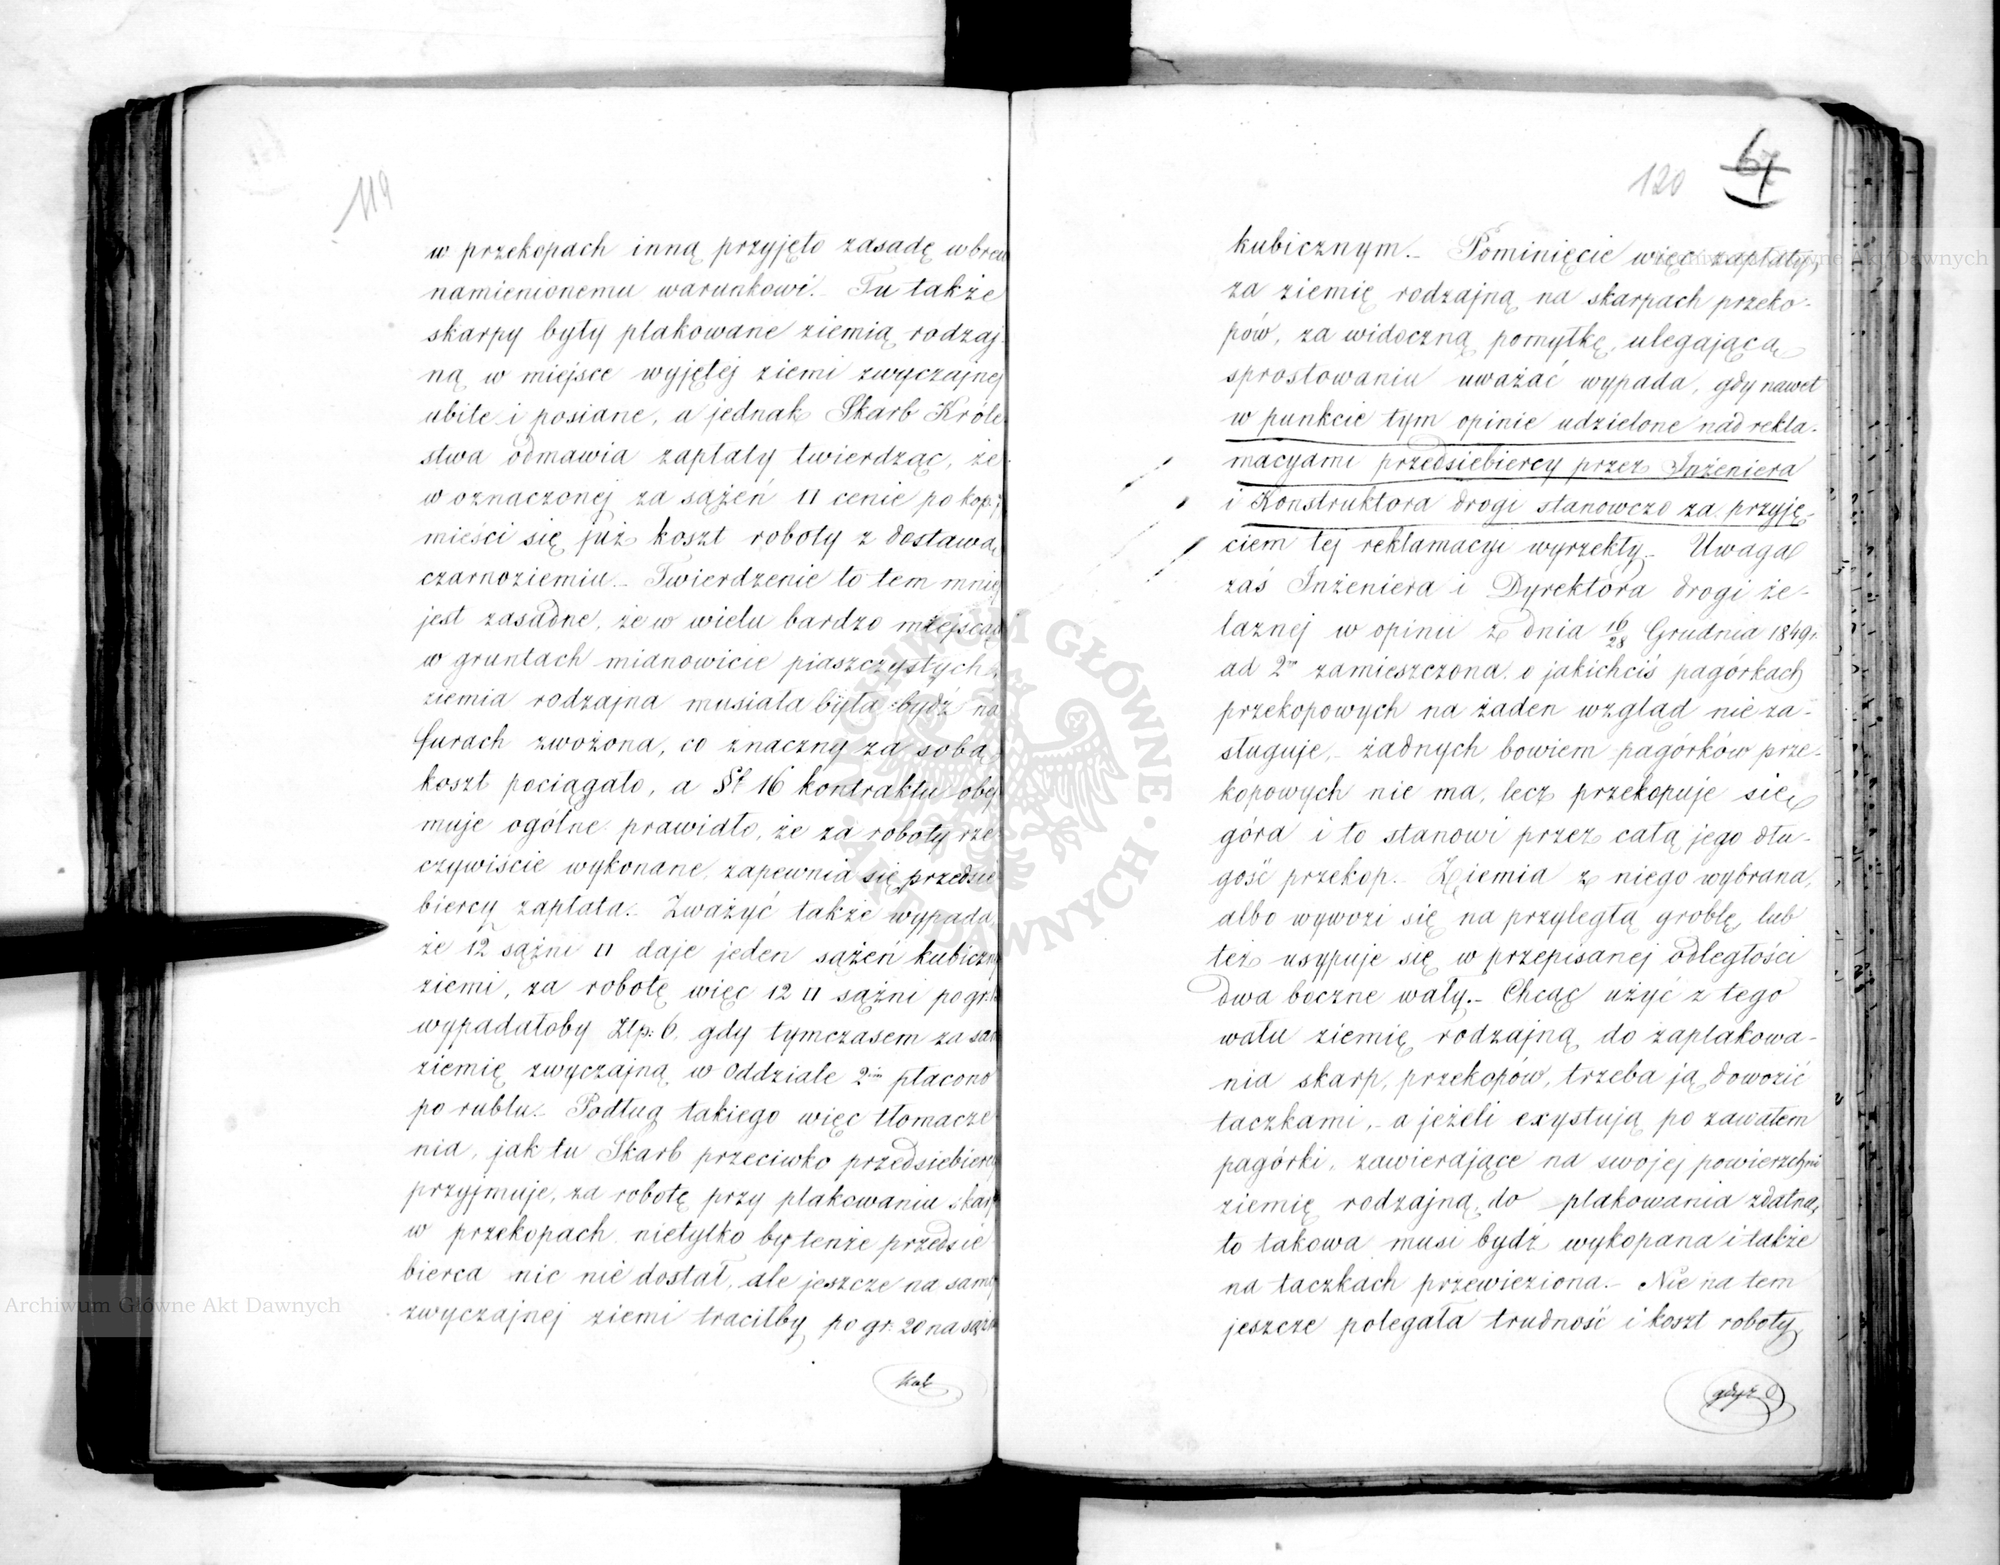 119
w przekopach inną przyjęto zasadę wbrew
namienionemu warunkowi. Tu także
skarpy były plakowane ziemią rodzaj-
ną w miejsce wyjętej ziemi zwyczajnej
ubite i posiane, a jednak Skarb Króle-
stwa odmawia zapłaty twierdząc, że
w oznaczonej za sążeń □ cenie po kop:
mieści się już koszt roboty z dostawą
czarnoziemiu. Twierdzenie to tem mniej
jest zasadne, że w wielu bardzo miejscach
w gruntach mianowicie piaszczystych
ziemia rodzajna musiała była bydź na
furach zwożona, co znaczny za sobą
koszt pociągało, a §f 16 kontraktu obej
muje ogólne prawidło, że za roboty rze
czywiście wykonane, zapewnia się przedsię
biercy zapłata. Zważyć także wypada,
że 12 sążni □ daje jeden sążeń kubiczny
ziemi, za robotę więc 12 □ sążni po gr:
wypadałoby Złp: 6, gdy tymczasem za samą
ziemię zwyczajną w Oddziale 2im płacono
po rublu. Podług takiego więc tłomacze
nia, jak tu Skarb przeciwko przedsiebiercy
przyjmuje, za robotę przy plakowaniu skarp
w przekopach nietylko by tenże przedsię
bierca nic nie dostał, ale jeszcze na samej
zwyczajnej ziemi traciłby po gr: 20 na sążniu
kub
120 67
kubicznym. Pominięcie więc zapłaty
za ziemię rodzajną na skarpach przeko-
pów, za widoczną pomyłkę, ulegającą
sprostowaniu uważać wypada, gdy nawet
w punkcie tym opinie udzielone nad rekla-
macyami przedsiebiercy przez Inżeniera
i Konstruktora drogi stanowczo za przyję-
ciem tej reklamacyi wyrzekły. Uwaga
zaś Inżeniera i Dyrektora drogi że-
laznej w opinii z dnia 16/28 Grudnia 1849 r.
ad 2m zamieszczona o jakichciś pagórkach
przekopowych na żaden wzgląd nie za-
sługuje, żadnych bowiem pagórków prze-
kopowych nie ma, lecz przekopuje się
góra i to stanowi przez całą jego dłu-
gość przekop. Ziemia z niego wybrana,
albo wywozi się na przyległą groblę, lub
też usypuje się w przepisanej odległości
dwa boczne wały. Chcąc użyć z tego
wału ziemię rodzajną do zaplakowa-
nia skarp, przekopów, trzeba ją dowozić
taczkami, a jeżeli exystują po za wałem
pagórki, zawierdjące na swojej powierzchni
ziemię rodzajną do plakowania zdatną,
to takowa musi bydź wykopana i także
na taczkach przewieziona. Nie na tem
jeszcze polegała trudność i koszt roboty,
gdyż
Archiwum Główne Akt Dawnych
Archiwum Główne Akt Dawnych
ARCHIWUM GŁÓWNE · AKT DAWNYCH ·